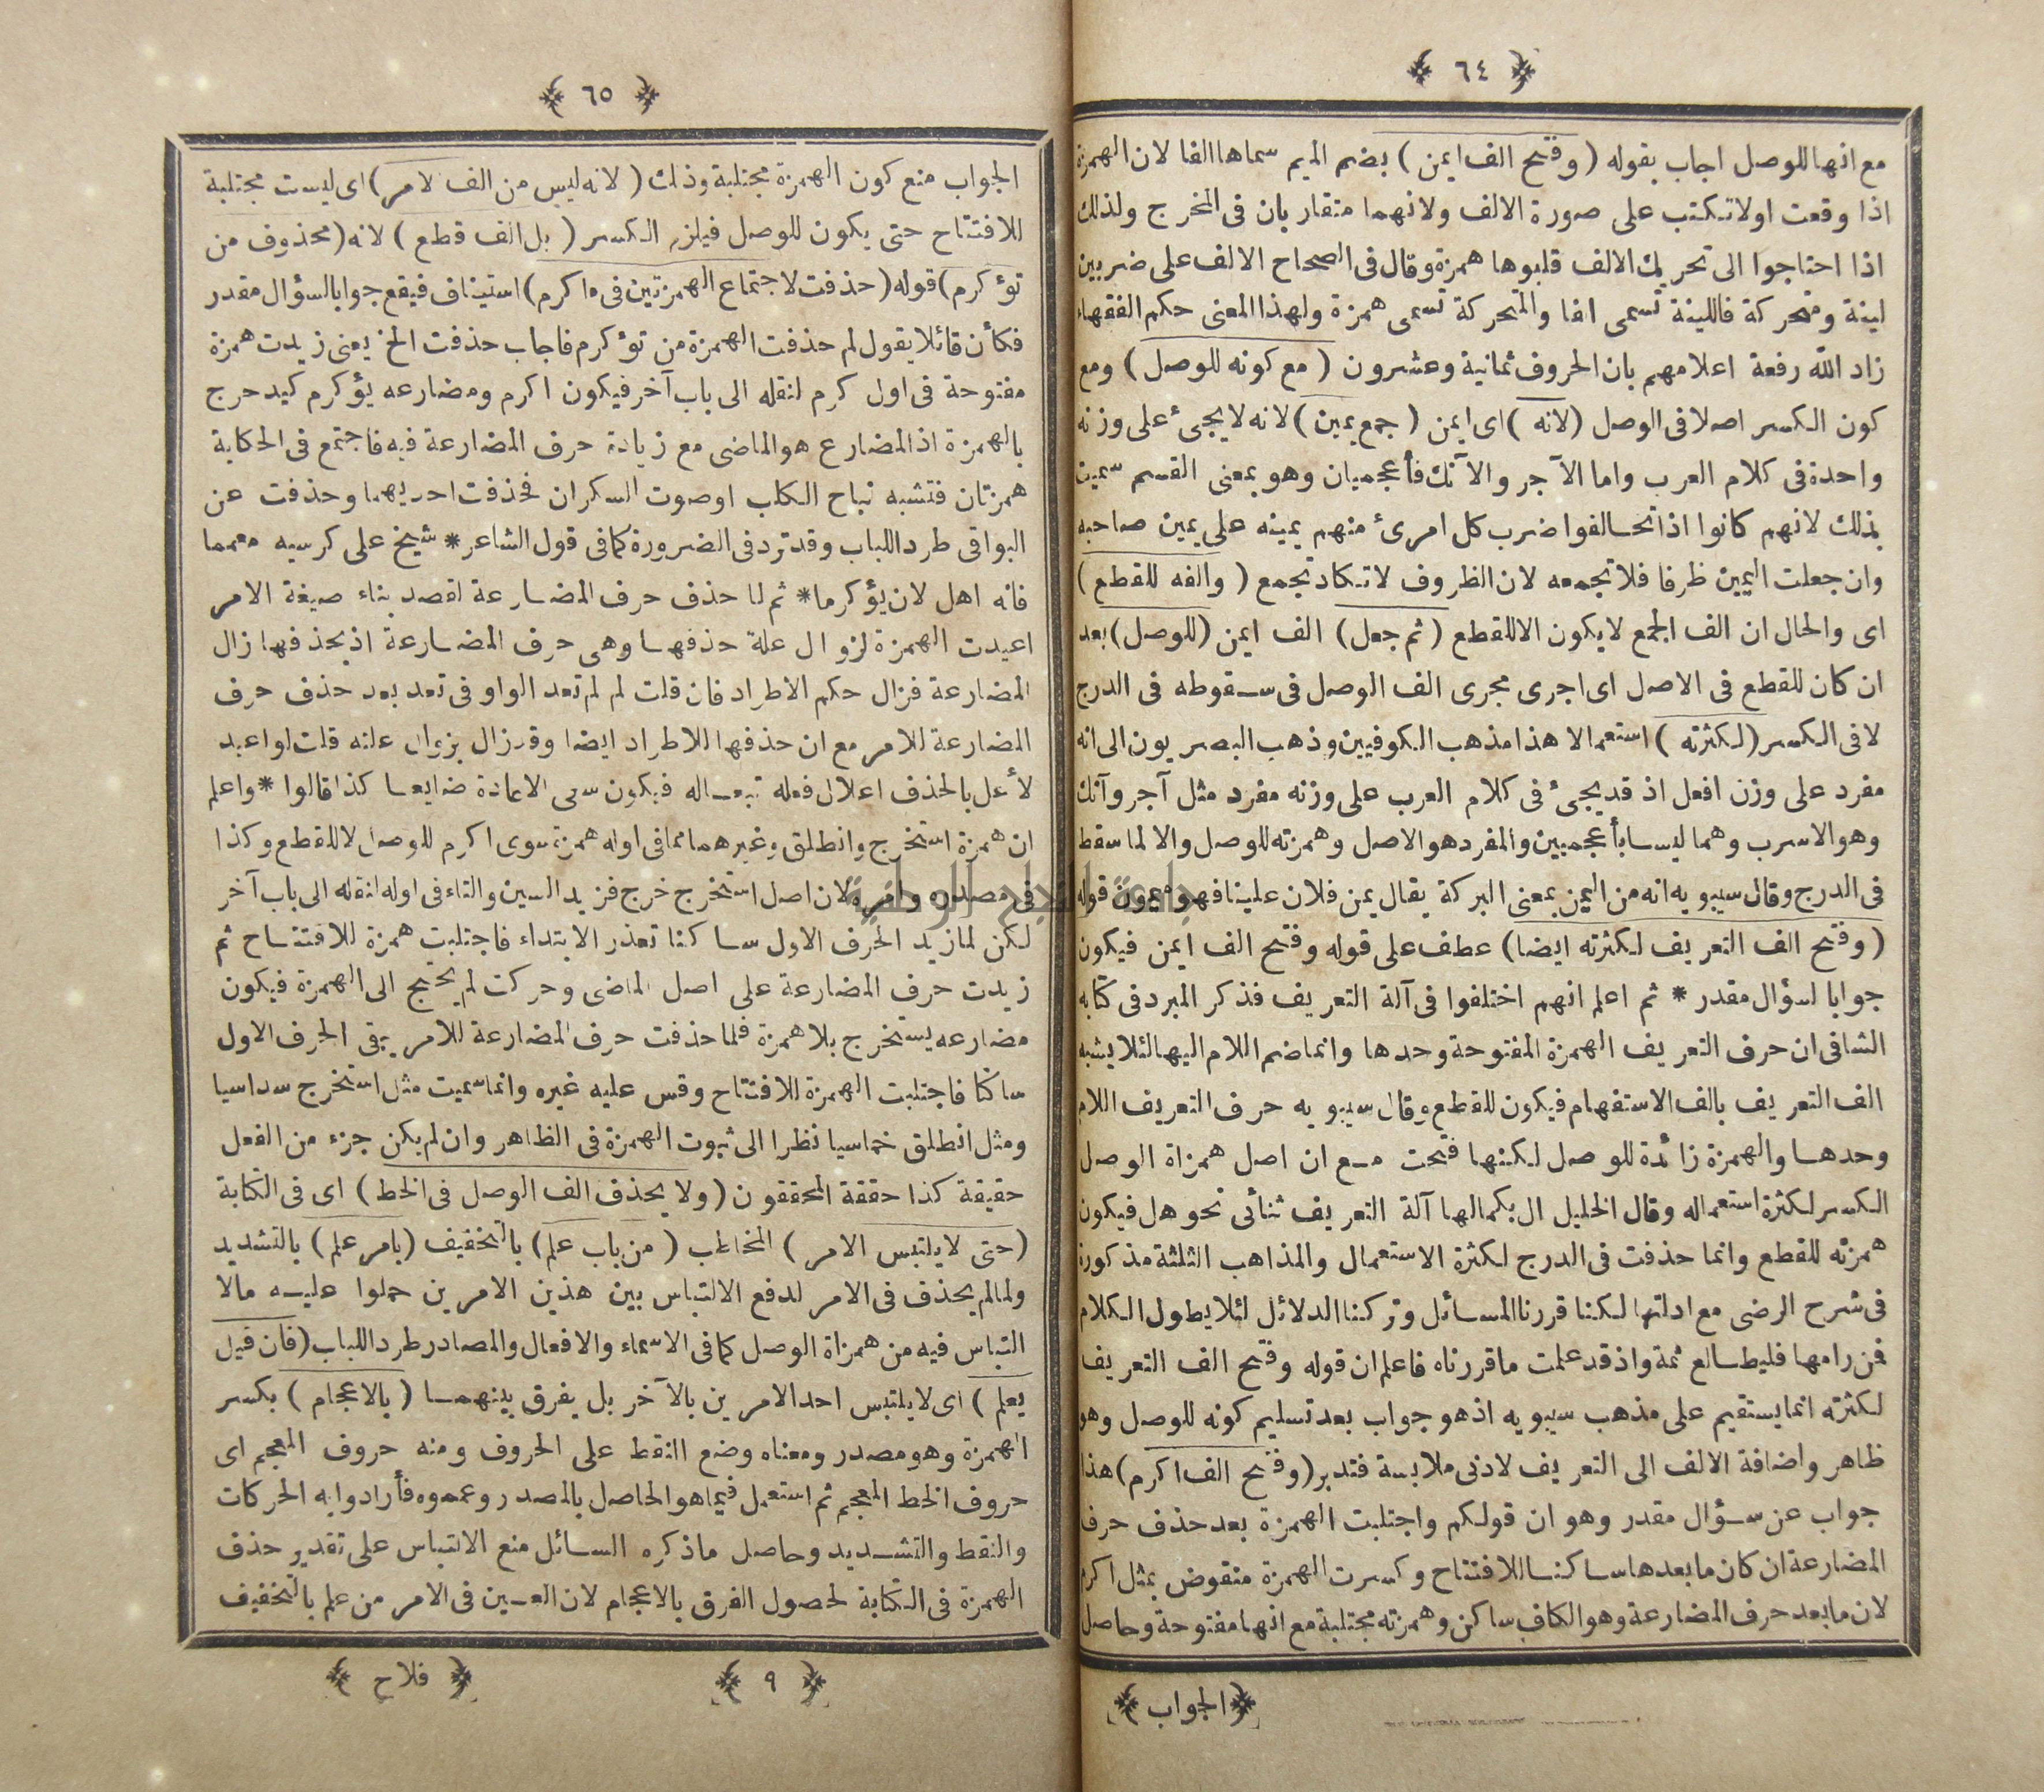 ﴿ ٦٤ ﴾
مع انها للوصل اجاب بقوله ( وفتح الف ايمن ) بضم الميم سماها الفا لان الهمزة
اذا وقعت اولا تكتب على صورة الالف ولانهما متقاربان فى المخرج ولذلك
اذا احتاجوا الى تحريك الالف قلبوها همزة وقال فى الصحاح الالف على ضربين
لينة ومتحركة فاللينة تسمى الفا والمتحركة تسمى همزة ولهذا المعنى حكم الفقهاء
زاد الله رفعة اعلامهم بان الحروف ثمانية وعشرون ( مع كونه للوصل ) ومع
كون الكسر اصلا فى الوصل ( لانه ) اى ايمن ( جمع يمين ) لانه لا يجىء على وزنه
واحدة فى كلام العرب واما الآجر والآنك فأعجميان وهو بمعنى القسم سميت
بذلك لانهم كانوا اذا تحالفوا ضرب كل امرئ منهم يمينه على يمين صاحبه
وان جعلت اليمين ظرفا فلا تجمعه لان الظروف لا تكاد تجمع ( والفه للقطع )
اى والحال ان الف الجمع لا يكون الا للقطع ( ثم جعل ) الف ايمن ( للوصل ) بعد
ان كان للقطع فى الاصل اى اجرى مجرى الف الوصل فى سقوطه فى الدرج
لا فى الكسر ( لكثرته ) استعمالا هذا مذهب الكوفيين وذهب البصريون الى انه
مفرد على وزن افعل اذ قد يجىء فى كلام العرب على وزنه مفرد مثل آجر وآنك
وهو الاسرب وهما ليسا بأعجميين والمفرد هو الاصل وهمزته للوصل والا لما سقط
فى الدرج وقال سيبويه انه من اليمن بمعنى البركة يقال يمن فلان علينا فهو ميمون قوله
( وفتح الف التعريف لكثرته ايضا ) عطف على قوله وفتح الف ايمن فيكون
جوابا لسؤال مقدر * ثم اعلم انهم اختلفوا فى آلة التعريف فذكر المبرد فى كتابه
الشافى ان حرف التعريف الهمزة المفتوحة وحدها وانما ضم اللام اليها لئلا يشبه
الف التعريف بالف الاستفهام فيكون للقطع وقال سيبويه حرف التعريف اللام
وحدها والهمزة زائدة للوصل لكنها فتحت مع ان اصل همزاة الوصل
الكسر لكثرة استعماله وقال الخليل ال بكمالها آلة التعريف ثنائى نحو هل فيكون
همزته للقطع وانما حذفت فى الدرج لكثرة الاستعمال والمذاهب الثلثة مذكورة
فى شرح الرضى مع ادلتها لكنا قررنا المسائل وتركنا الدلائل لئلا يطول الكلام
فمن رامها فليطالع ثمة واذ قد علمت ما قررناه فاعلم ان قوله وفتح الف التعريف
لكثرته انما يستقيم على مذهب سيبويه اذ هو جواب بعد تسليم كونه للوصل وهو
ظاهر واضافة الالف الى التعريف لادنى ملابسة فتدبر ( وفتح الف اكرم ) هذا
جواب عن سؤال مقدر وهو ان قولكم واجتلبت الهمزة بعد حذف حرف
المضارعة ان كان ما بعدها ساكنا للافتتاح وكسرت الهمزة منقوض بمثل اكرم
لان ما بعد حرف المضارعة وهو الكاف ساكن وهمزته مجتلبة مع انها مفتوحة وحاصل
﴿ الجواب ﴾
﴿ ٦٥ ﴾
الجواب منع كون الهمزة مجتلبة وذلك ( لانه ليس من الف لامر ) اى ليست مجتلبة
للافتتاح حتى يكون للوصل فيلزم الكسر ( بل الف قطع ) لانه ( محذوف من
تؤكرم ) قوله ( حذفت لاجتماع الهمزتين فى ءاكرم ) استيناف فيقع جوابا لسؤال مقدر
فكأن قائلا يقول لم حذفت الهمزة من تؤكرم فاجاب حذفت الخ يعنى زيدت همزة
مفتوحة فى اول كرم لنقله الى باب آخر فيكون اكرم ومضارعه يؤكرم كيدحرج
بالهمزة اذ المضارع هو الماضى مع زيادة حرف المضارعة فيه فاجتمع فى الحكاية
همزتان فتشبه نباح الكلب او صوت السكران فحذفت احديهما وحذفت عن
البواقى طردا للباب وقد ترد فى الضرورة كما فى قول الشاعر * شيخ على كرسيه معمما
فانه اهل لان يؤكرما * ثم لما حذف حرف المضارعة لقصد بناء صيغة الامر
اعيدت الهمزة لزوال علة حذفها وهى حرف المضارعة اذ بحذفها زال
المضارعة فزال حكم الاطراد فان قلت لم لم تعد الواو فى تعد بعد حذف حرف
المضارعة للامر مع ان حذفها للاطراد ايضا وقد زال بزوال علته قلت لو اعيد
لأعل بالحذف اعلال فعله تبعا له فيكون سعى الاعادة ضايعا كذا قالوا * واعلم
ان همزة استخرج وانطلق وغيرهما مما فى اوله همزة سوى اكرم للوصل لا للقطع وكذا
فى مصدره وامره لان اصل استخرج خرج فزيد السين والتاء فى اوله لنقله الى باب آخر
لكن لما زيد الحرف الاول ساكنا تعذر الابتداء فاجتلبت همزة للافتتاح ثم
زيدت حرف المضارعة على اصل الماضى وحركت لم يحتج الى الهمزة فيكون
مضارعه يستخرج بلا همزة فلما حذفت حرف المضارعة للامر يبقى الحرف الاول
ساكنا فاجتلبت الهمزة للافتتاح وقس عليه غيره وانما سميت مثل استخرج سداسيا
ومثل انطلق خماسيا نظرا الى ثبوت الهمزة فى الظاهر وان لم يكن جزء من الفعل
حقيقة كذا حققة المحققون ( ولا يحذف الف الوصل فى الخط ) اى فى الكتابة
( حتى لا يلتبس الامر ) المخاطب ( من باب علم ) بالتخفيف ( بامر علم ) بالتشديد
ولما لم يحذف فى الامر لدفع الالتباس بين هذين الامرين حملوا عليه ما لا
التباس فيه من همزاة الوصل كما فى الاسماء والافعال والمصادر طردا للباب ( فان قيل
يعلم ) اى لا يلتبس احد الامرين بالآخر بل يفرق بينهما ( بالاعجام ) بكسر
الهمزة وهو مصدر ومعناه وضع النقط على الحروف ومنه حروف المعجم اى
حروف الخط المعجم ثم استعمل فيما هو الحاصل بالمصدر وعمموه فأرادوا به الحركات
والنقط والتشديد وحاصل ما ذكره السائل منع الالتباس على تقدير حذف
الهمزة فى الكتابة لحصول الفرق بالاعجام لان العين فى الامر من علم بالتخفيف
﴿ ٩ ﴾ ﴿ فلاح ﴾